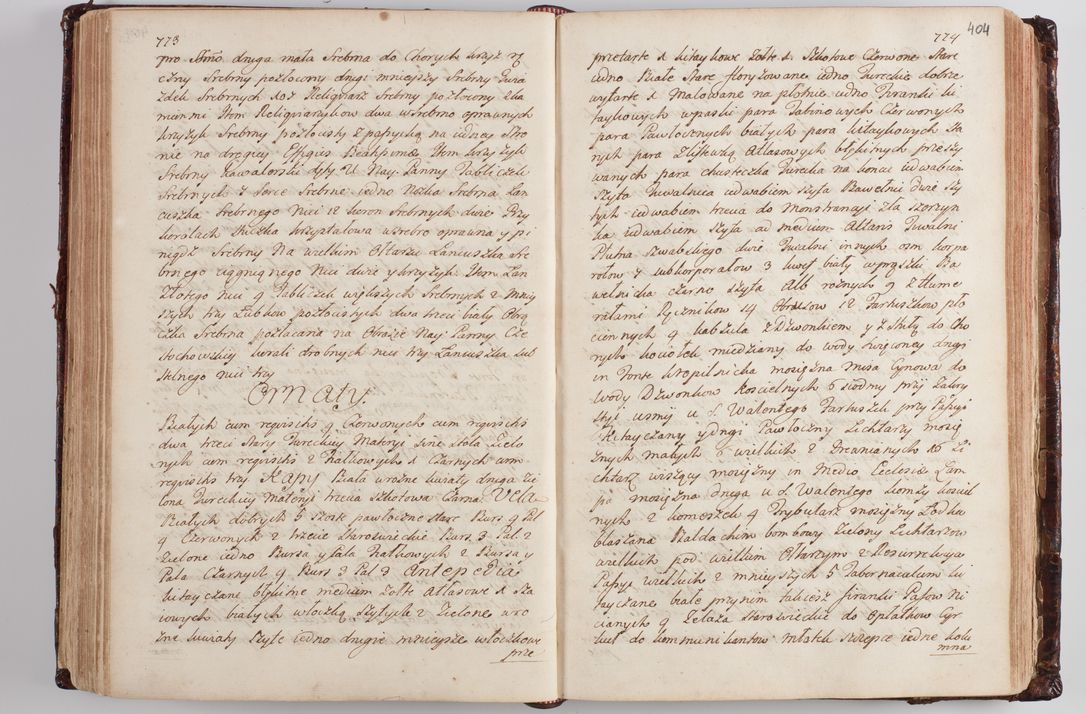 773
pro SSmo druga mała Srebrna do Chorych krzyż rę
czny Srebrny pozłocony drugi mnieyszy Srebrny Gwia
zdek Srebrnych 107 Religiarz Srebrny pozłocony
Item Religiarzykow dwa w Srebro oprawnych
krzyzyk Srebrny pozłocisty z papyską na iedney Stro
nie na drugiey Effigies Item krzyzyk
Srebrny kawalorski Nay. Panny Tabliczek
Srebrnych 7 Serce Srebrne iedno Nożka Srebrna Łan
cuszka Srebrnego Nici 12 koron Srebrnych dwie Przy
Sniczka krzyształowa w Srebro oprawna y pi
niądz Srebrny Na wielkim Ołtarzu Łancuszka Sre
brnego ciągnionego Nici dwie y krzyzyk Item Łan
złotego nici 9 Tabliczek większych Srebrnych 2 Mniey
szych trzy Łubkow pozłocistych dwa trzeci biały Obrą
czka Srebrna pozłacana na Obrazie Nay: Panny Czę
stochowskiey korali drobnych nici trzy Łancuszka Sub
telnego nici trzy
Ornaty
Białych cum requisitis 9 Czerwonych cum requisitis
dwa trzeci Stary Tureckiey Materyi Sine Stola Zielo
nych cum requisitis 2 Fiałkowych 1 Czarnych cum
requisitis trzy Kapy Biała w rozne kwiaty druga Zie
lona Tureckiey materyi trzecia szkotowa Czarna Vela
Białych dobrych 5 Szoste pawłoczne stare Burs 9 Pal
9 Czerwonych 2 trzecie Staroświeckie Burs 3 Pal. 2
Zielone iedno Bursa y Pala Fiałkowych 2 Bursa y
Pala Czarnych 9 Burs 3 Pal 3 Antepedia
kitayczane błękitne medium zołte Atłasowe 1 Sza
iowych białych włoczką Szytych 2 Zielone w ro
zne kwiaty Szyte iedno drugie mnieysze włoczkowe
prze
774
404
przetarte 1 kitaykowe zołte 1 Szkotowe Czerwone Stare
iedno Białe Stare floryzowane iedno Tureckie dobrze
wytarte 1 Malowane na płotnie iedno Firanki ki
taykowych w paski para Tabinowych Czerwonych
para Pawłocznych białych para kitaykowych Sta
rych para Atłasowych błękitnych przeszy
wanych para chusteczka Turecka na koncu iedwabiem
Szyta Tuwalnica iedwabiem szyta Bawełni dwie Szy
tych iedwabiem trzecia do Monstrancyi zła Szorzyn
ka iedwabiem Szyta ad medium Altaris Tuwalni
Płutna Szwabskiego dwie Tuwalni innych osm korpo
rałow 7 Subkorporałow 3 kwef biały w prążki Ba
welnicka czarno Szyta Alb roznych 9 z
ralami Ręcznikow 14 Obrusow 12 Fartuszkow pło
ciennych 9 kabzula z Dzwonkiem y z Stułą do Cho
rych kociołek miedziany do wody święconey drugi
in Fonte kropilnicka mosiężna misa Cynowa do
wody Dzwonkow koscielnych 6 siodmy przy Zakry
styi usmy u S. Walentego Fartuszek przy Passyi
kitayczany y drugi Pawłoczny Lichtarzy mosię
znych małych 6 wielkich 2 Drewnianych 16 Li
chtarz wiszący mosiężny in Medio Ecclesiae Lam
pa mosiężna druga u S. Walentego komży kosciel
nych 2 komeszek 9 Trybularz mosiężny Łodka
blaszana Baldachim bombowy zielony Lichtarzow
wielkich pod wielkim Ołtarzem 2 Resurrekcya
Passye wielkich 2 mnieyszych 5 Tabernaculum ki
tayczane białe przy niem takiesz firanki Pasow Ni
cianych 9 Zelaza Staroswieckie do Opłatkow Cyr
kuł do kommunikantow Mostek w Szopce iedne kolu
mna